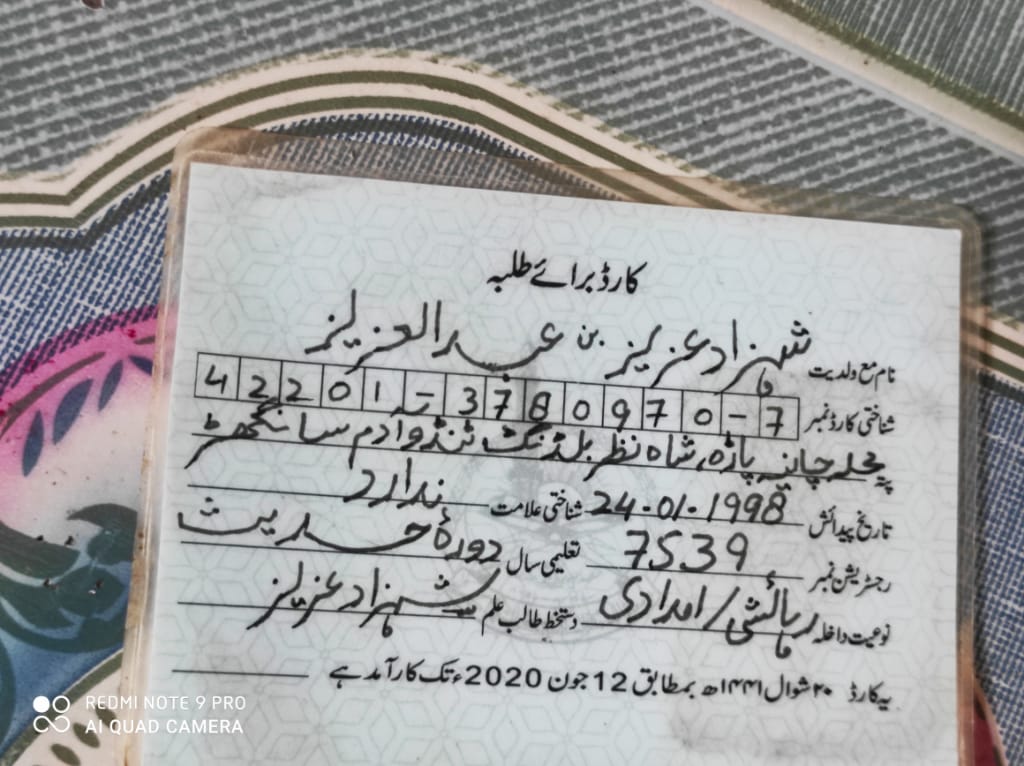 کارڈ برائے طلبہ
نام مع ولدیت شہزاد عزیز بن عبدالعزیز
شناختی کارڈ نمبر 42201-3780970-7
پتہ محلہ چاپنہ پاڑہ، شاہ نظر بلڈنگ ٹنڈو آدم سانگھڑ
تاریخ پیدائش 24-01-1998 شناختی علامت ندارد
رجسٹریشن نمبر 7539 تعلیمی سال دورۂ حدیث
نوعیت داخلہ رہائشی/امدادی دستخط طالب علم شہزاد عزیز
یہ کارڈ ۲۰ شوال ۱۴۴۱ھ بمطابق 12 جون 2020ء تک کارآمد ہے
REDMI NOTE 9 PRO
AI QUAD CAMERA